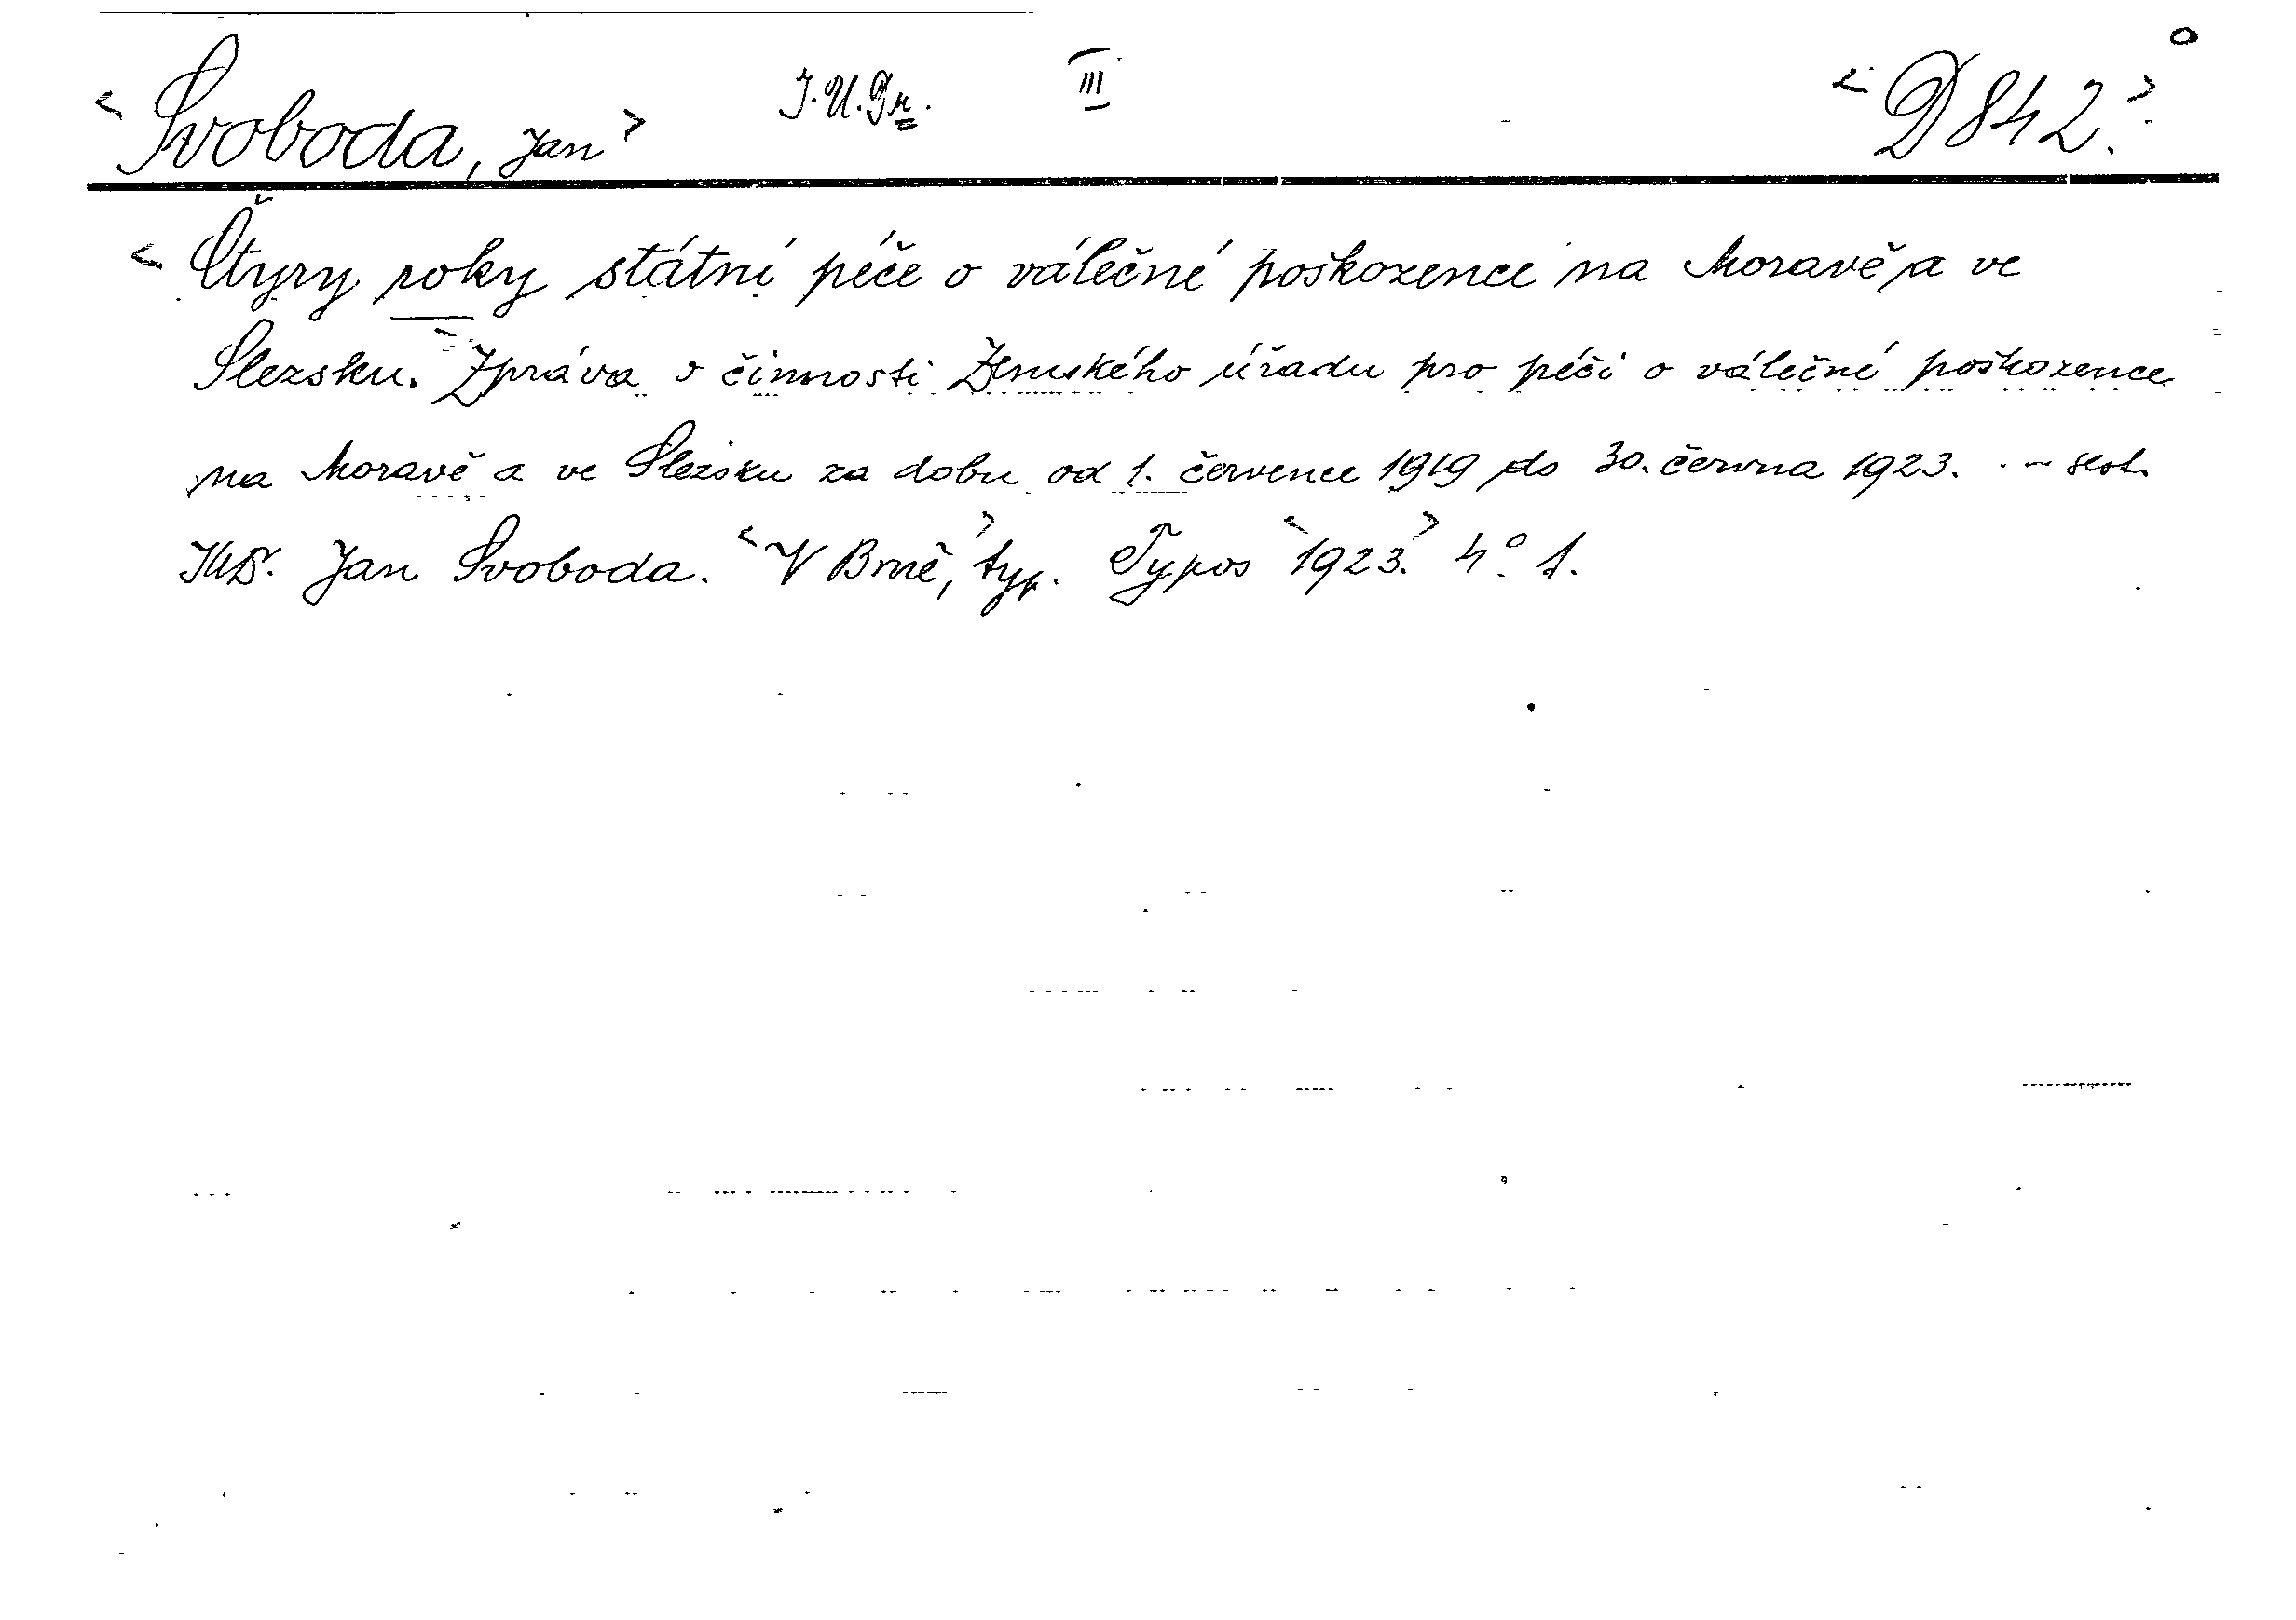 < Svoboda, Jan > J.U.Dr. III < D 842. >
< Čtyry roky státní péče o válečné poškozence na Moravě a ve
Slezsku. Zpráva o činnosti Zemského úřadu pro péči o válečné poškozence
na Moravě a ve Slezsku za dobu od 1. července 1919 do 30. června 1923. - sest.
JUDr. Jan Svoboda. < V Brně, > typ. Typos < 1923. > 4° 1.